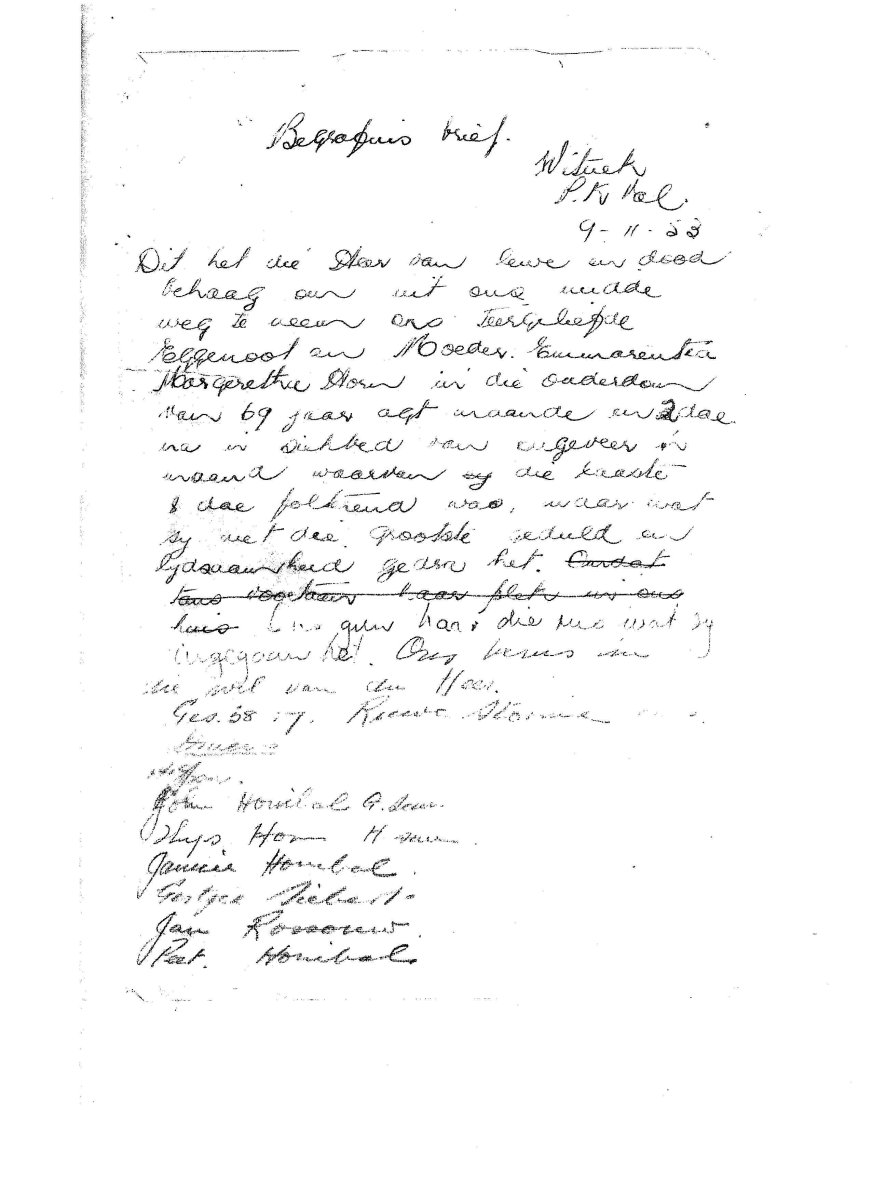 Begrafnis brief.
Witnek
P.K. Val.
9-11-53
Dit het die Heer van lewe en dood
behaag om uit ons midde
weg te neem ons teergeliefde
Eggenoot en Moeder. Emmarentia
Margerethe Horn in die ouderdom
van 69 jaar agt maande en 2 dae
na 'n siekbed van ongeveer 'n
maand waarvan sy die laaste
8 dae folterend was, maar wat
sy met die grootste geduld en
lydsaamheid gedra het. Omdat
haar plek in ons
huis Ons gun haar die rus wat sy
ingegaan het. Ons berus in
die wil van die Heer.
Ges. 58 : 7.
John Honibal
Thys Horn
Jannie Honibal.
Siebert
Jan Rossouw.
Peet. Honibal.